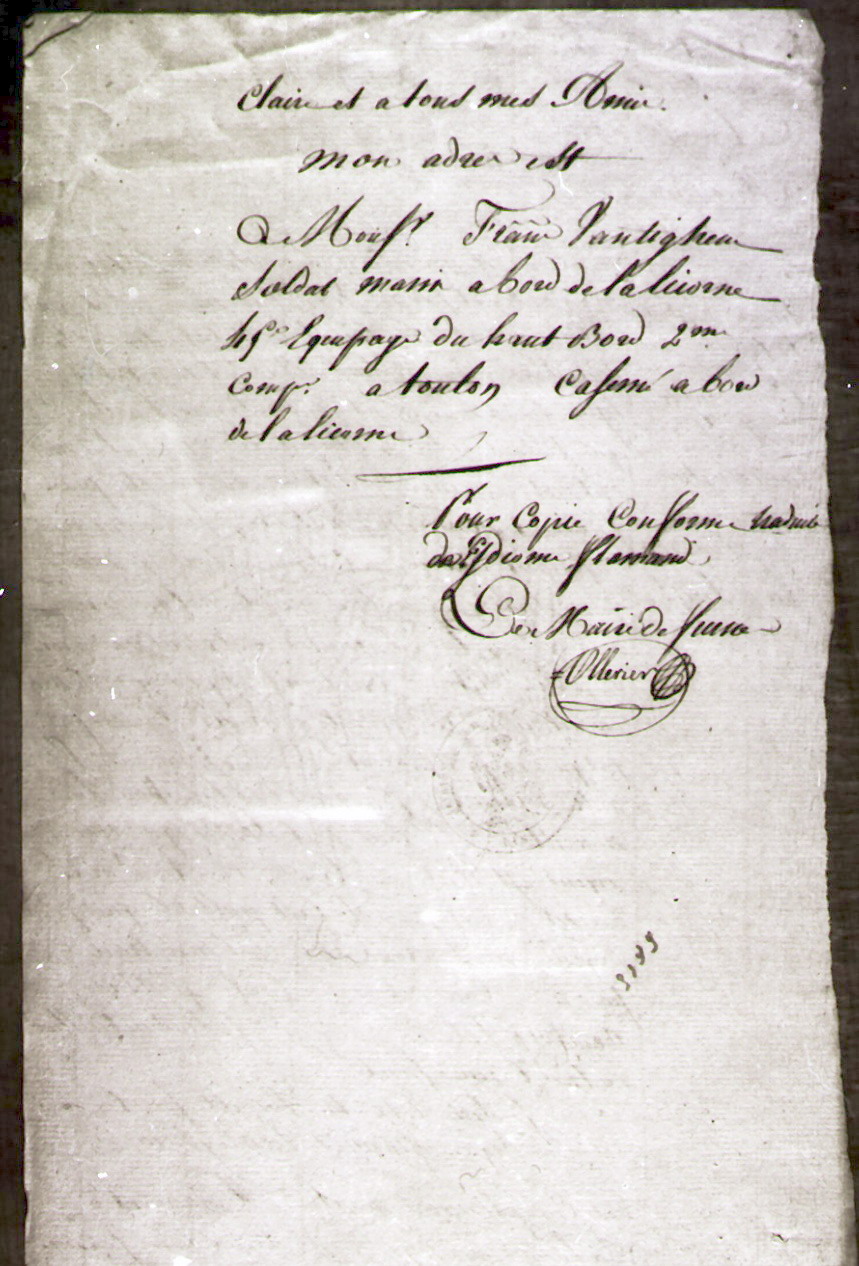 Claire et a tous mes Amis
mon adres est
A Monsr. Franc Vantighem
Soldat marin a bord de la licorne
45e Equipage du haut Bord 2me
Compe. a toulon Caserné a bord
de la licorne
Pour Copie Conforme traduite
de l'Idiome flamand
Le Maire de
Ollevier